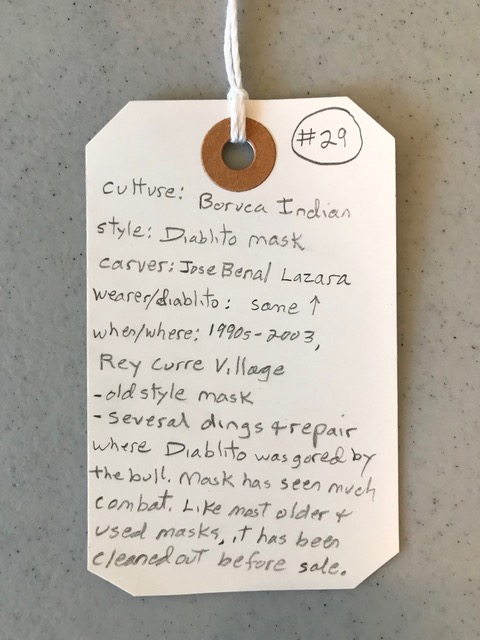 #29
culture: Boruca Indian
style: Diablito mask
carver: Jose Benal Lazara
wearer/diablito: same ↑
when/where: 1990s-2003,
Rey Curre Village
- old style mask
- Several dings & repair
where Diablito was gored by
the bull. Mask has seen much
combat. Like most older &
used masks, it has been
cleaned out before sale.